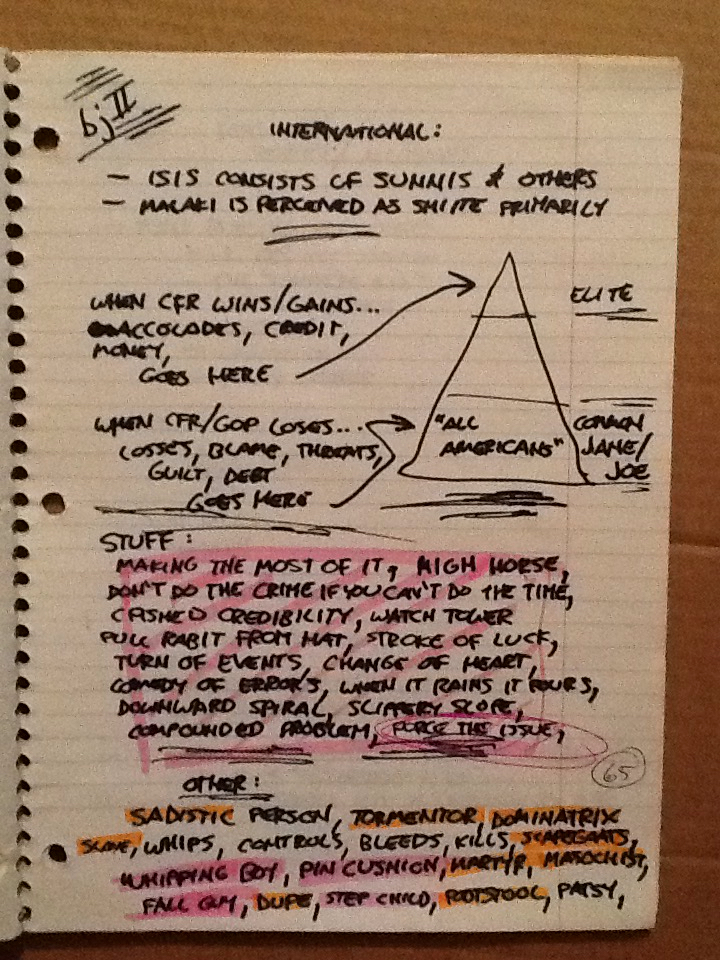 bjII
INTERNATIONAL:
- ISIS CONSISTS OF SUNNIS & OTHERS
- MALAKI IS PERCEIVED AS SHIITE PRIMARILY
WHEN CFR WINS/GAINS...
ACCOLADES, CREDIT,
MONEY,
GOES HERE
ELITE
WHEN CFR/GOP LOSES...
LOSSES, BLAME, THREATS,
GUILT, DEBT
GOES HERE
"ALL
AMERICANS"
COMMON
JANE/
JOE
STUFF:
MAKING THE MOST OF IT, HIGH HORSE,
DON'T DO THE CRIME IF YOU CAN'T DO THE TIME,
CREDIBILITY, WATCH TOWER
PULL RABIT FROM HAT, STROKE OF LUCK,
TURN OF EVENTS, CHANGE OF HEART,
COMEDY OF ERROR'S, WHEN IT RAINS IT POURS,
DOWNWARD SPIRAL, SLIPPERY SLOPE,
COMPOUNDED PROBLEM, FORCE THE ISSUE,
65
OTHER:
SADISTIC PERSON, TORMENTOR DOMINATRIX
SLAVE, WHIPS, CONTROLS, BLEEDS, KILLS, SCAPEGOATS,
WHIPPING BOY, PIN CUSHION, MARTYR, MASOCHIST,
FALL GUY, DUPE, STEP CHILD, FOOTSTOOL, PATSY,